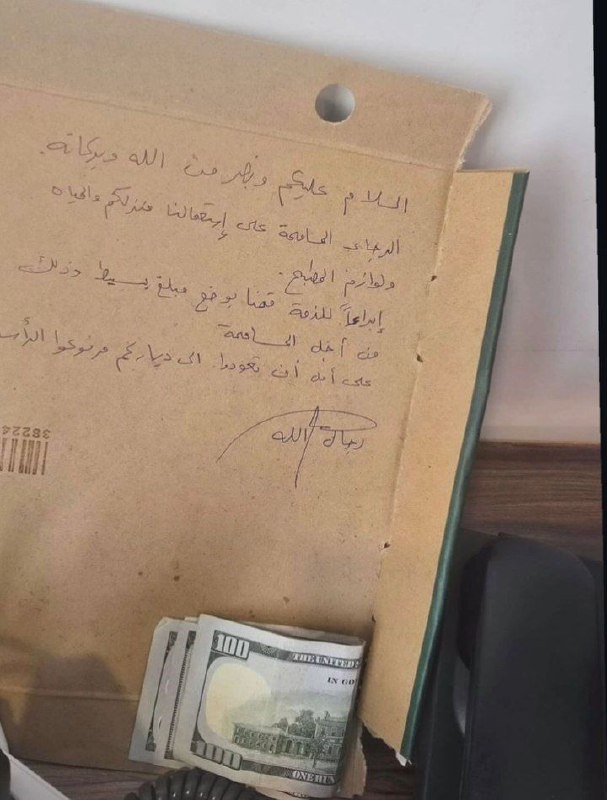 السلام عليكم ونصر من الله وبركاته.
الرجاء المسامحة على إستعمالنا منزلكم والمياه
ولوازم المطبخ.
إبراءاً للذمة قمنا بوضع مبلغ بسيط وذلك
من أجل المسامحة
على أمل أن تعودوا الى دياركم مرفوعوا الرأس
رجال الله
38224
100
THE UNITED
IN GO
100
ONE HUN